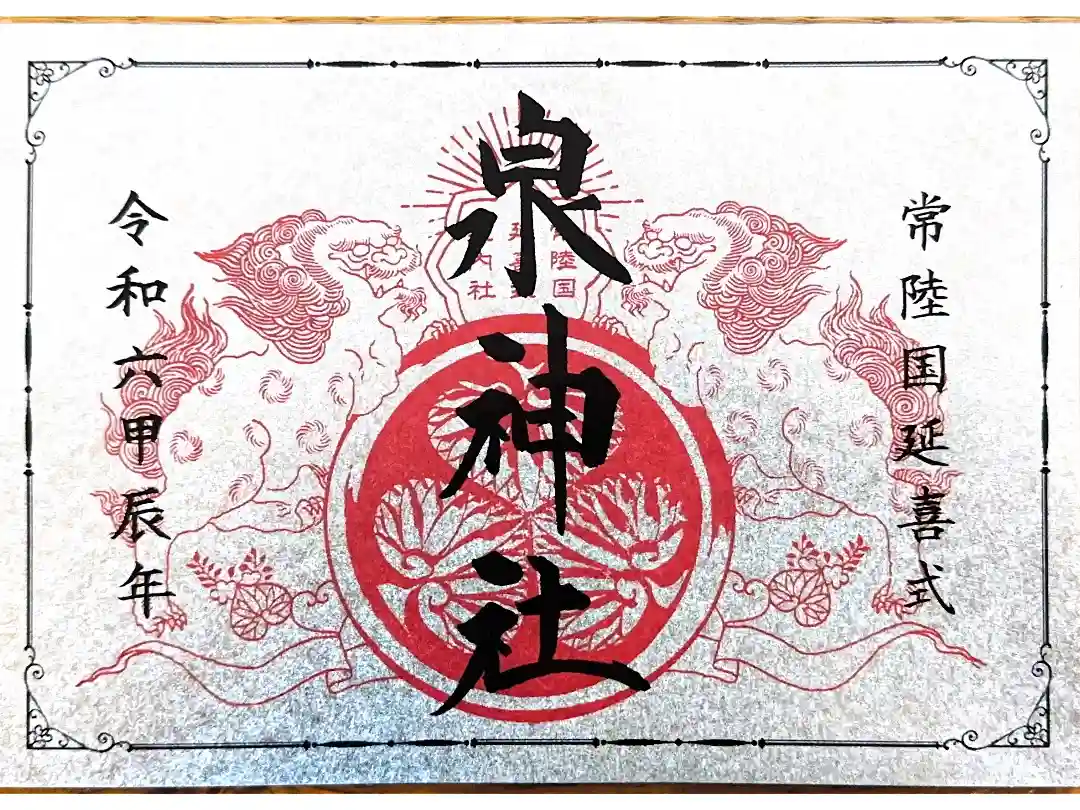 常陸国延喜式
泉神社
令和六甲辰年
陸国
内
社